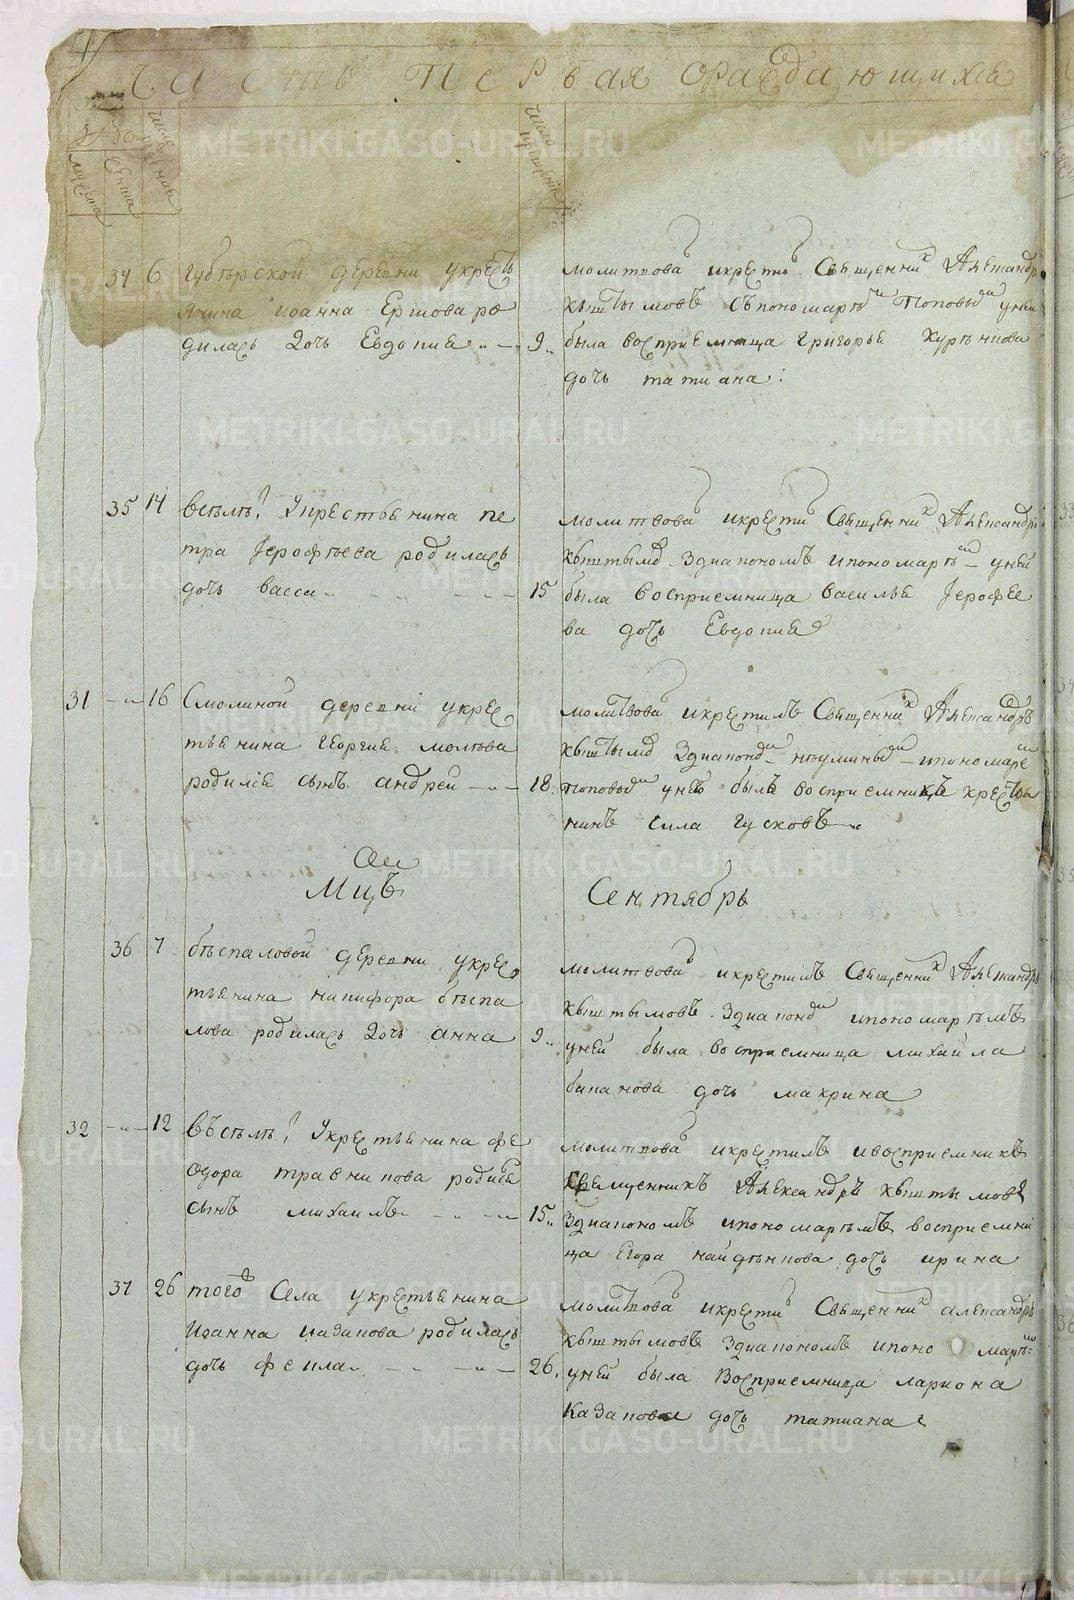 Часть Первая Ораждающихся
число рождений
число крещений
34 6 губгорской деревни укресть
янина иоанна Ершова ро
дилась дочь Евдокия 9
молитвова икрести Священник Александръ
кыштымовъ съпономаремъ Поповым уней
была восприемница григорья
дочь татиана
35 14 Всѣлѣ? Укрестьянина пе
тра Іерофѣева родилась
дочь васса 15
молитвова икрести Священник Александръ
кыштымо Здиакономъ ипономарем уней
была восприемница василья Іерофее
ва дочь Евдокия
31 16 Смолиной деревни укрес
тьянина георгия молкова
родился сынъ андрей 18
молитвова икрестилъ Священник Александръ
кыштымо Здиакон ипономаре
Поповым унего былъ восприемникъ крестья
нинъ сила гусковъ
Мцъ Сентябрь
36 7 бѣспаловой деревни укрес
тьянина никифора бѣспа
лова родилась дочь анна 9
молитвова икрестилъ Священник Александръ
кыштымовъ Здиаконо ипономаремъ
уней была восприемница михаила
бапанова дочь макрина
32 12 Въсѣлѣ? Укрестьянина фе
одора травникова родился
сынъ михаилъ 15
молитвова икрестилъ ивосприемникъ
священникъ Александръ кыштымовъ
Здиакономъ ипономаремъ восприемни
ца Егора найденкова дочь ирина
37 26 того Села укрестьянина
Иоанна казакова родилась
дочь фекла 26
молитвова икрести Священник александръ
кыштымовъ Здиакономъ ипоно маре
уней была Восприемница лариона
Казакова дочь татиана